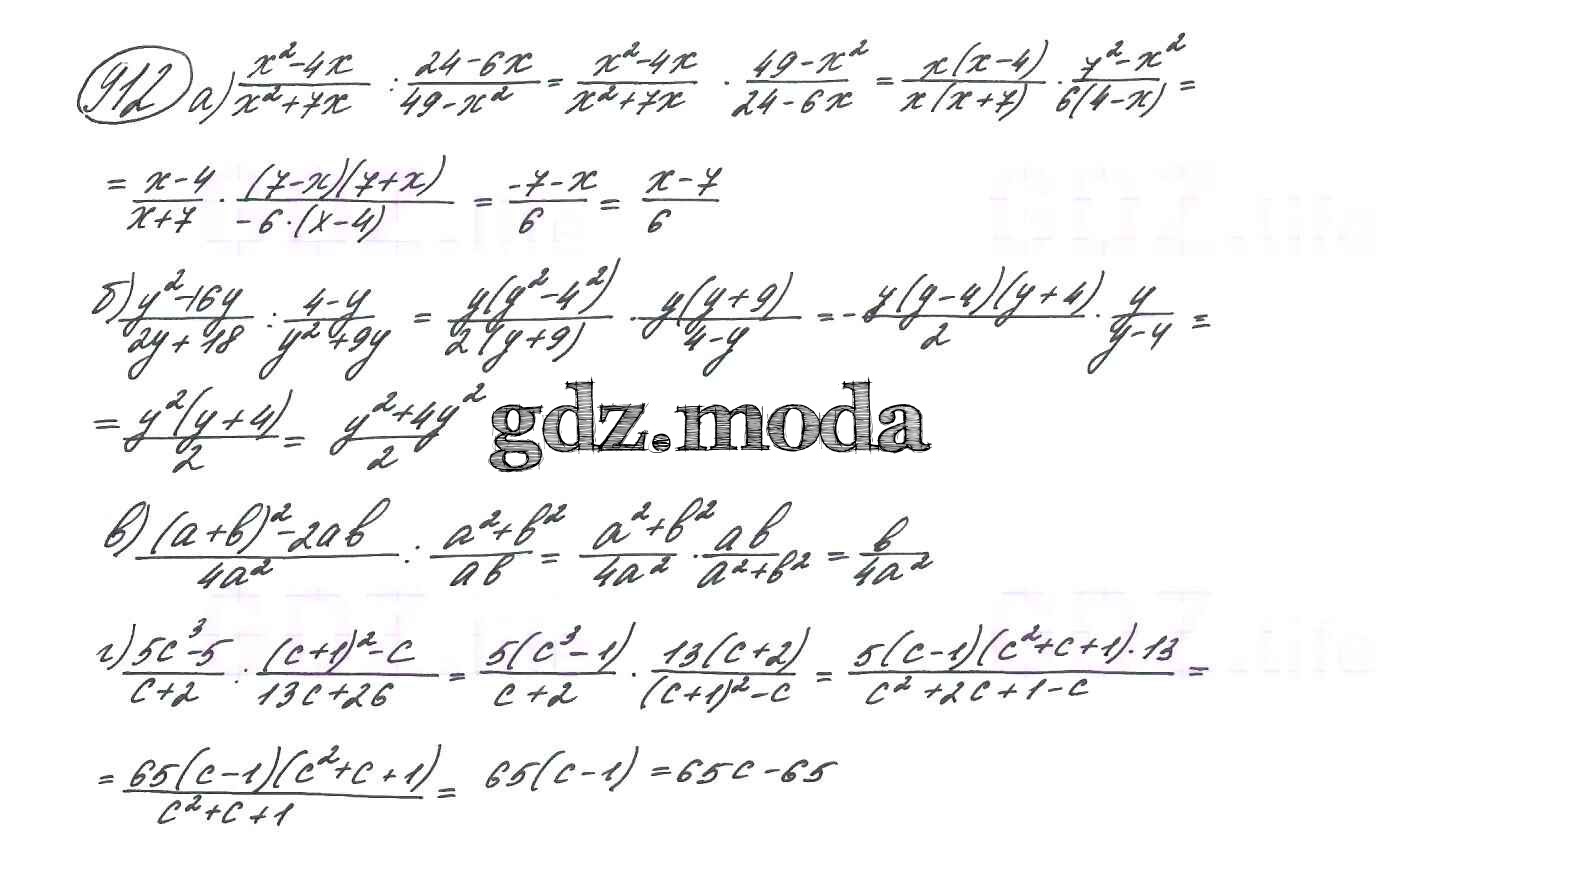 912 а) (x²-4x)/(x²+7x) : (24-6x)/(49-x²) = (x²-4x)/(x²+7x) · (49-x²)/(24-6x) = (x(x-4))/(x(x+7)) · (7²-x²)/(6(4-x)) =
= (x-4)/(x+7) · ((7-x)(7+x))/(-6·(x-4)) = (-7-x)/6 = (x-7)/6
б) (y²-16y)/(2y+18) : (4-y)/(y²+9y) = (y(y²-4²))/(2(y+9)) · (y(y+9))/(4-y) = -(y(y-4)(y+4))/2 · y/(y-4) =
= (y²(y+4))/2 = (y²+4y²)/2
gdz.moda
в) ((a+b)²-2ab)/(4a²) : (a²+b²)/(ab) = (a²+b²)/(4a²) · (ab)/(a²+b²) = b/(4a²)
г) (5c³-5)/(c+2) : ((c+1)²-c)/(13c+26) = (5(c³-1))/(c+2) · (13(c+2))/((c+1)²-c) = (5(c-1)(c²+c+1)·13)/(c²+2c+1-c) =
= (65(c-1)(c²+c+1))/(c²+c+1) = 65(c-1) = 65c-65